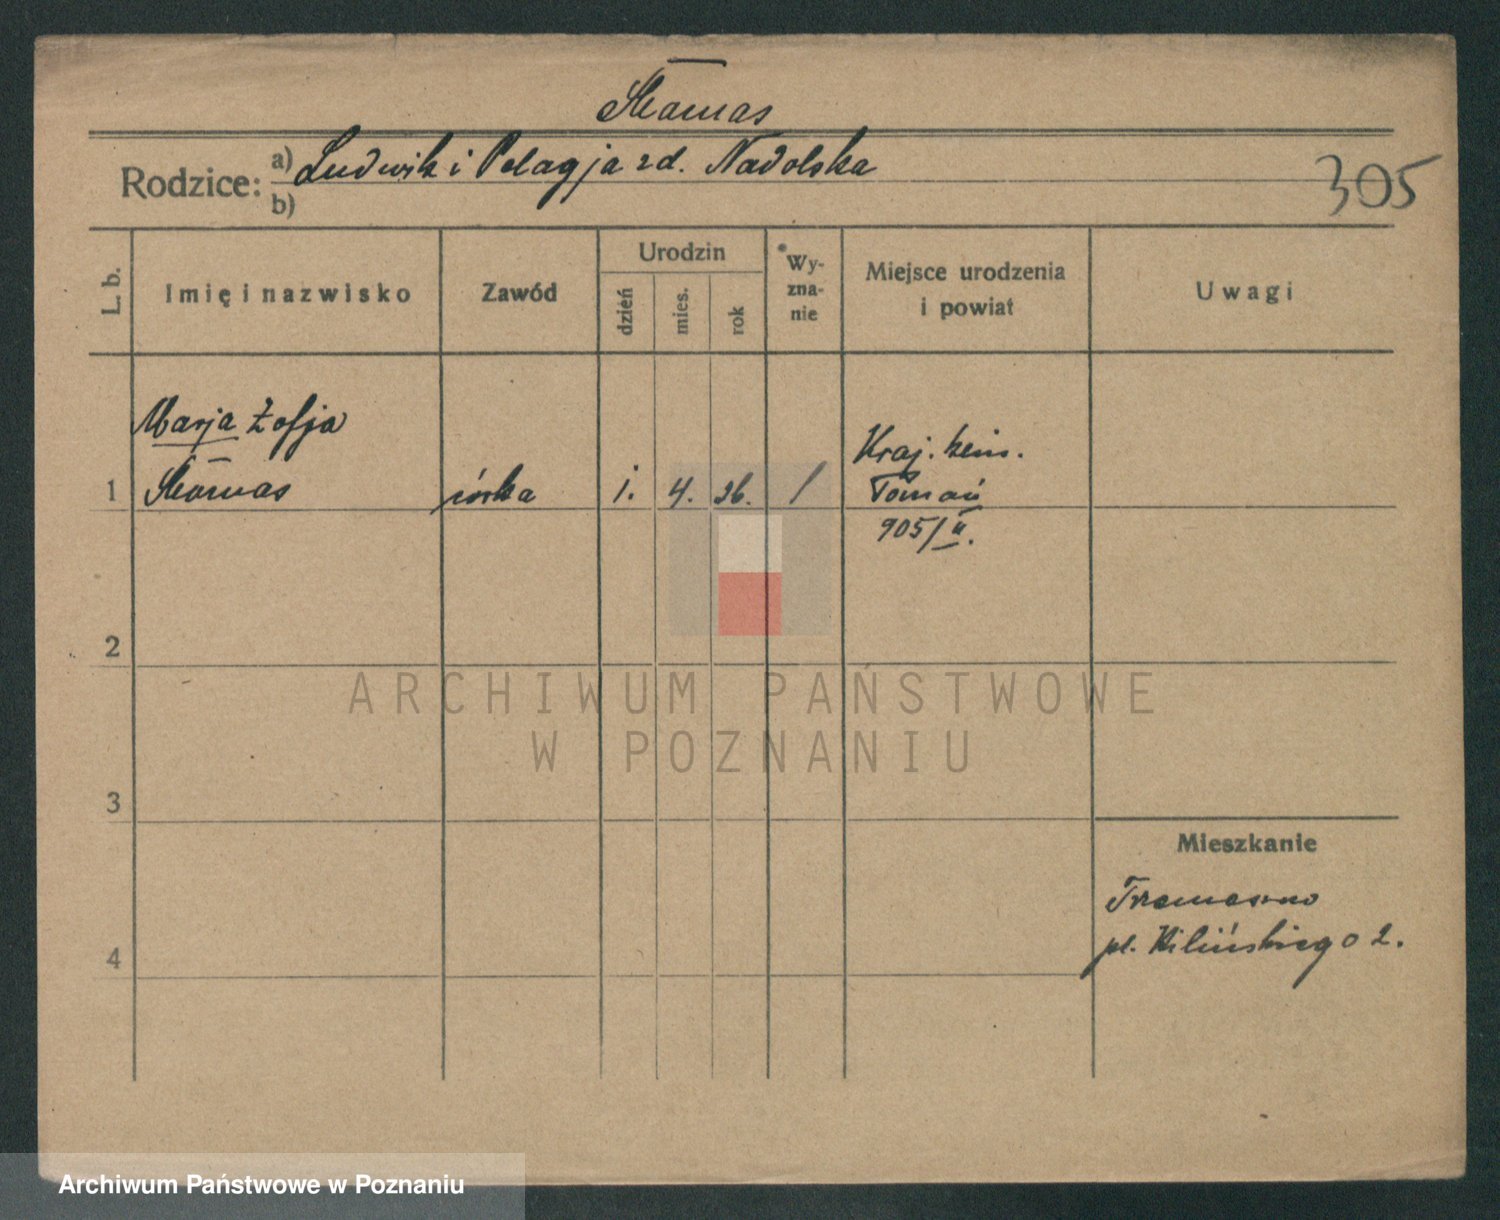 Rodzice: a) Ludwik i Pelagja zd. Nadolska
305
b)
L. b.
Imię i nazwisko
Zawód
Urodzin
dzień
mies.
rok
Wy-
zna-
nie
Miejsce urodzenia
i powiat
Uwagi
Marja Zofja
1
córka
1.
4.
26.
/
Kraj.
Poznań
905/II.
2
3
4
Mieszkanie
Trzemeszno
pl. Kilińskiego 2.
ARCHIWUM PAŃSTWOWE
W POZNANIU
Archiwum Państwowe w Poznaniu